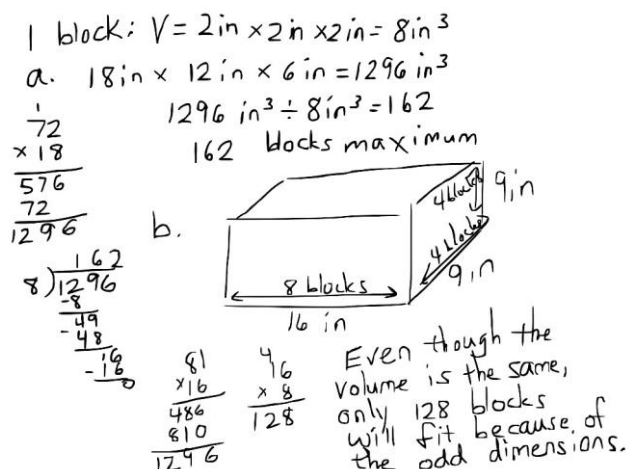 1 block: V = 2in × 2in × 2in = 8in³
a. 18in × 12in × 6in = 1296in³
1296 in³ ÷ 8in³ = 162
162 blocks maximum
1
72
× 18
576
72
1296
162
8)1296
-8
49
-48
16
-16
0
b.
4 blocks
9in
4 blocks
9in
8 blocks
16 in
81
×16
486
810
1296
4
16
× 8
128
Even though the
volume is the same,
only 128 blocks
will fit because of
the odd dimensions.